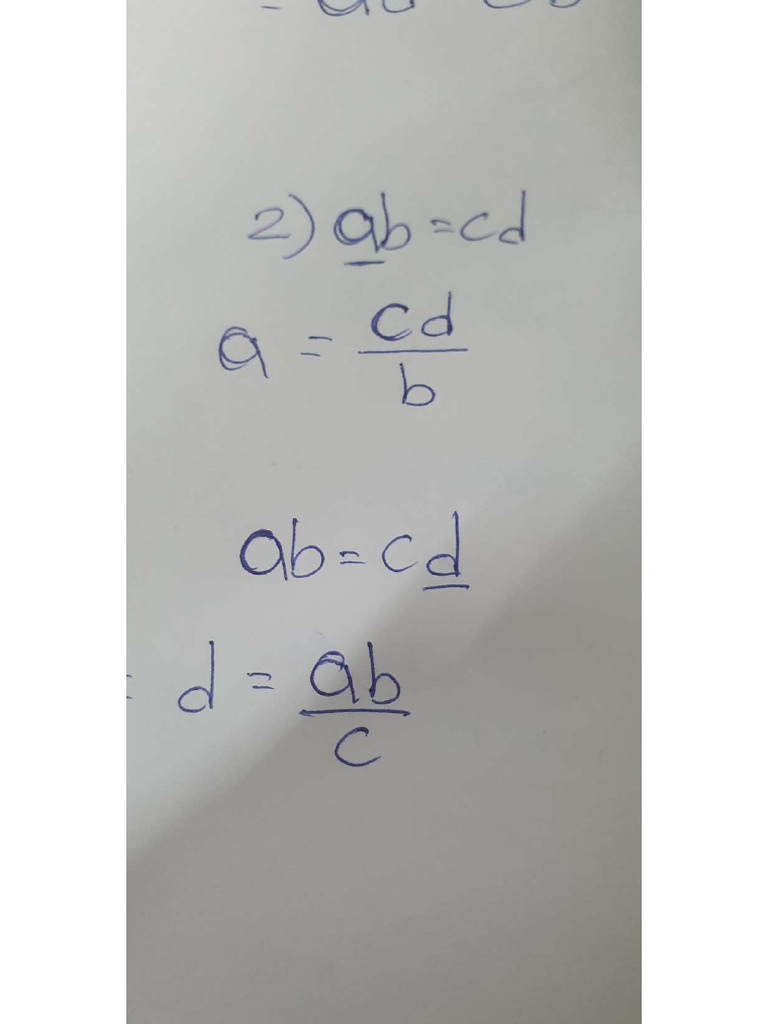 2) ab = cd
a = cd/b
ab = cd
= d = ab/c